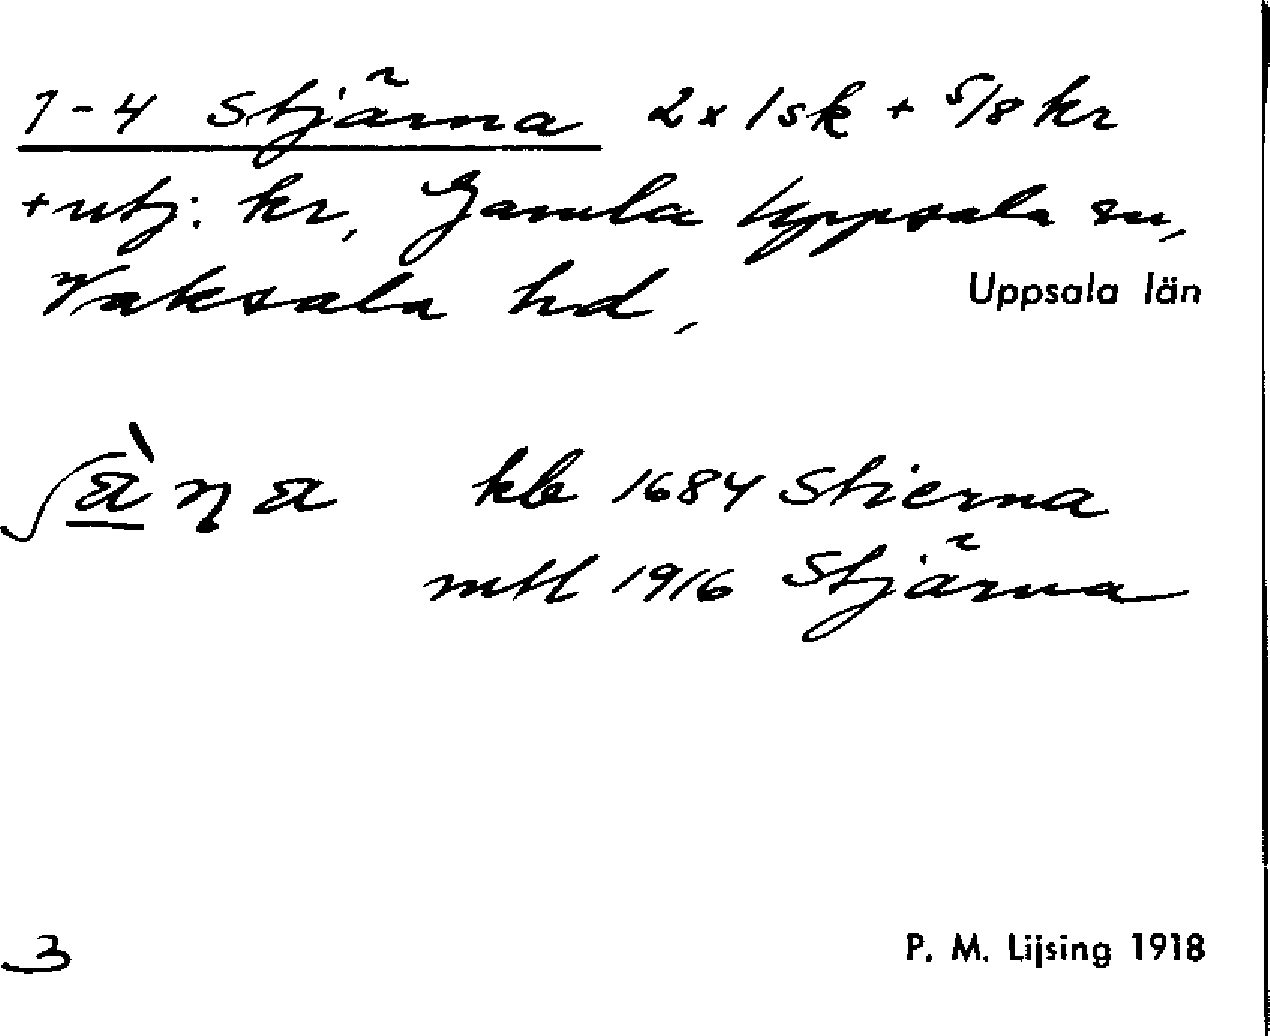 1-4 Stjärna 2 x 1 sk + 5/8 kr
+ utj: kr, Gamla Uppsala sn,
Vaksala hd, Uppsala län
kb 1684 Stierna
mtl 1916 Stjärna
3 P. M. Lijsing 1918